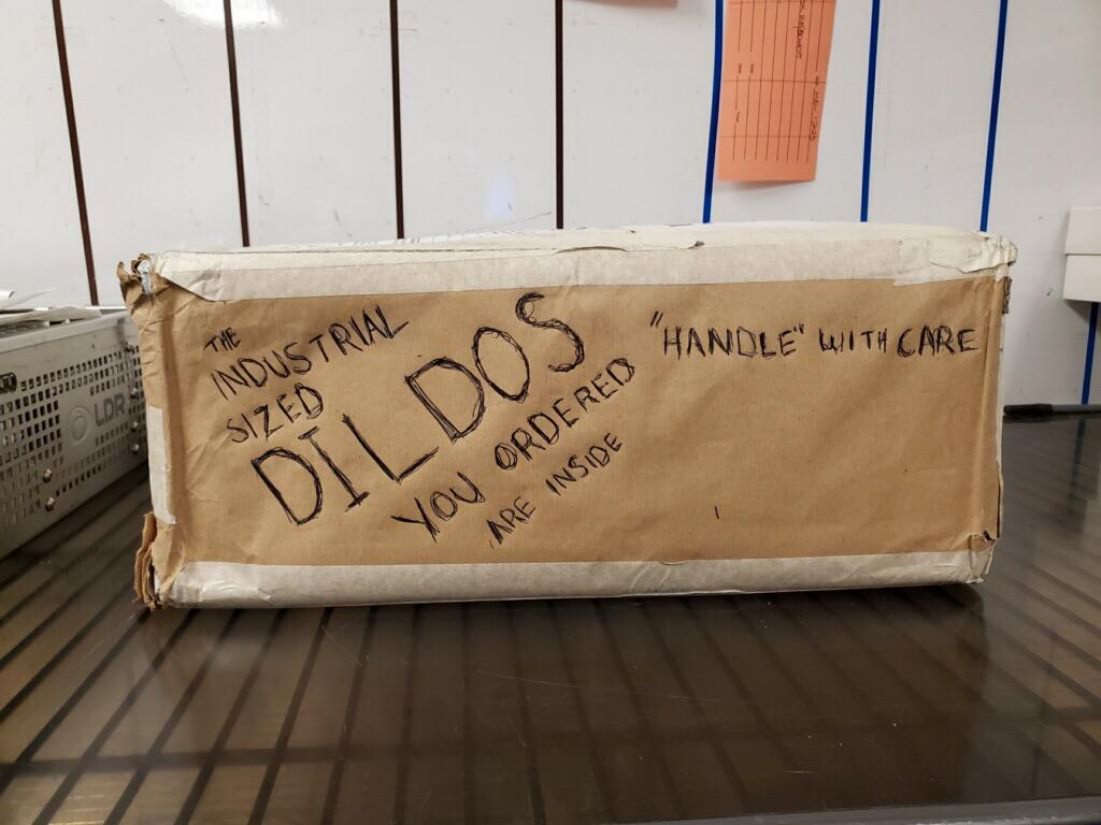 THE
INDUSTRIAL
SIZED
DILDOS
YOU ORDERED
ARE INSIDE
"HANDLE" WITH CARE
LDR